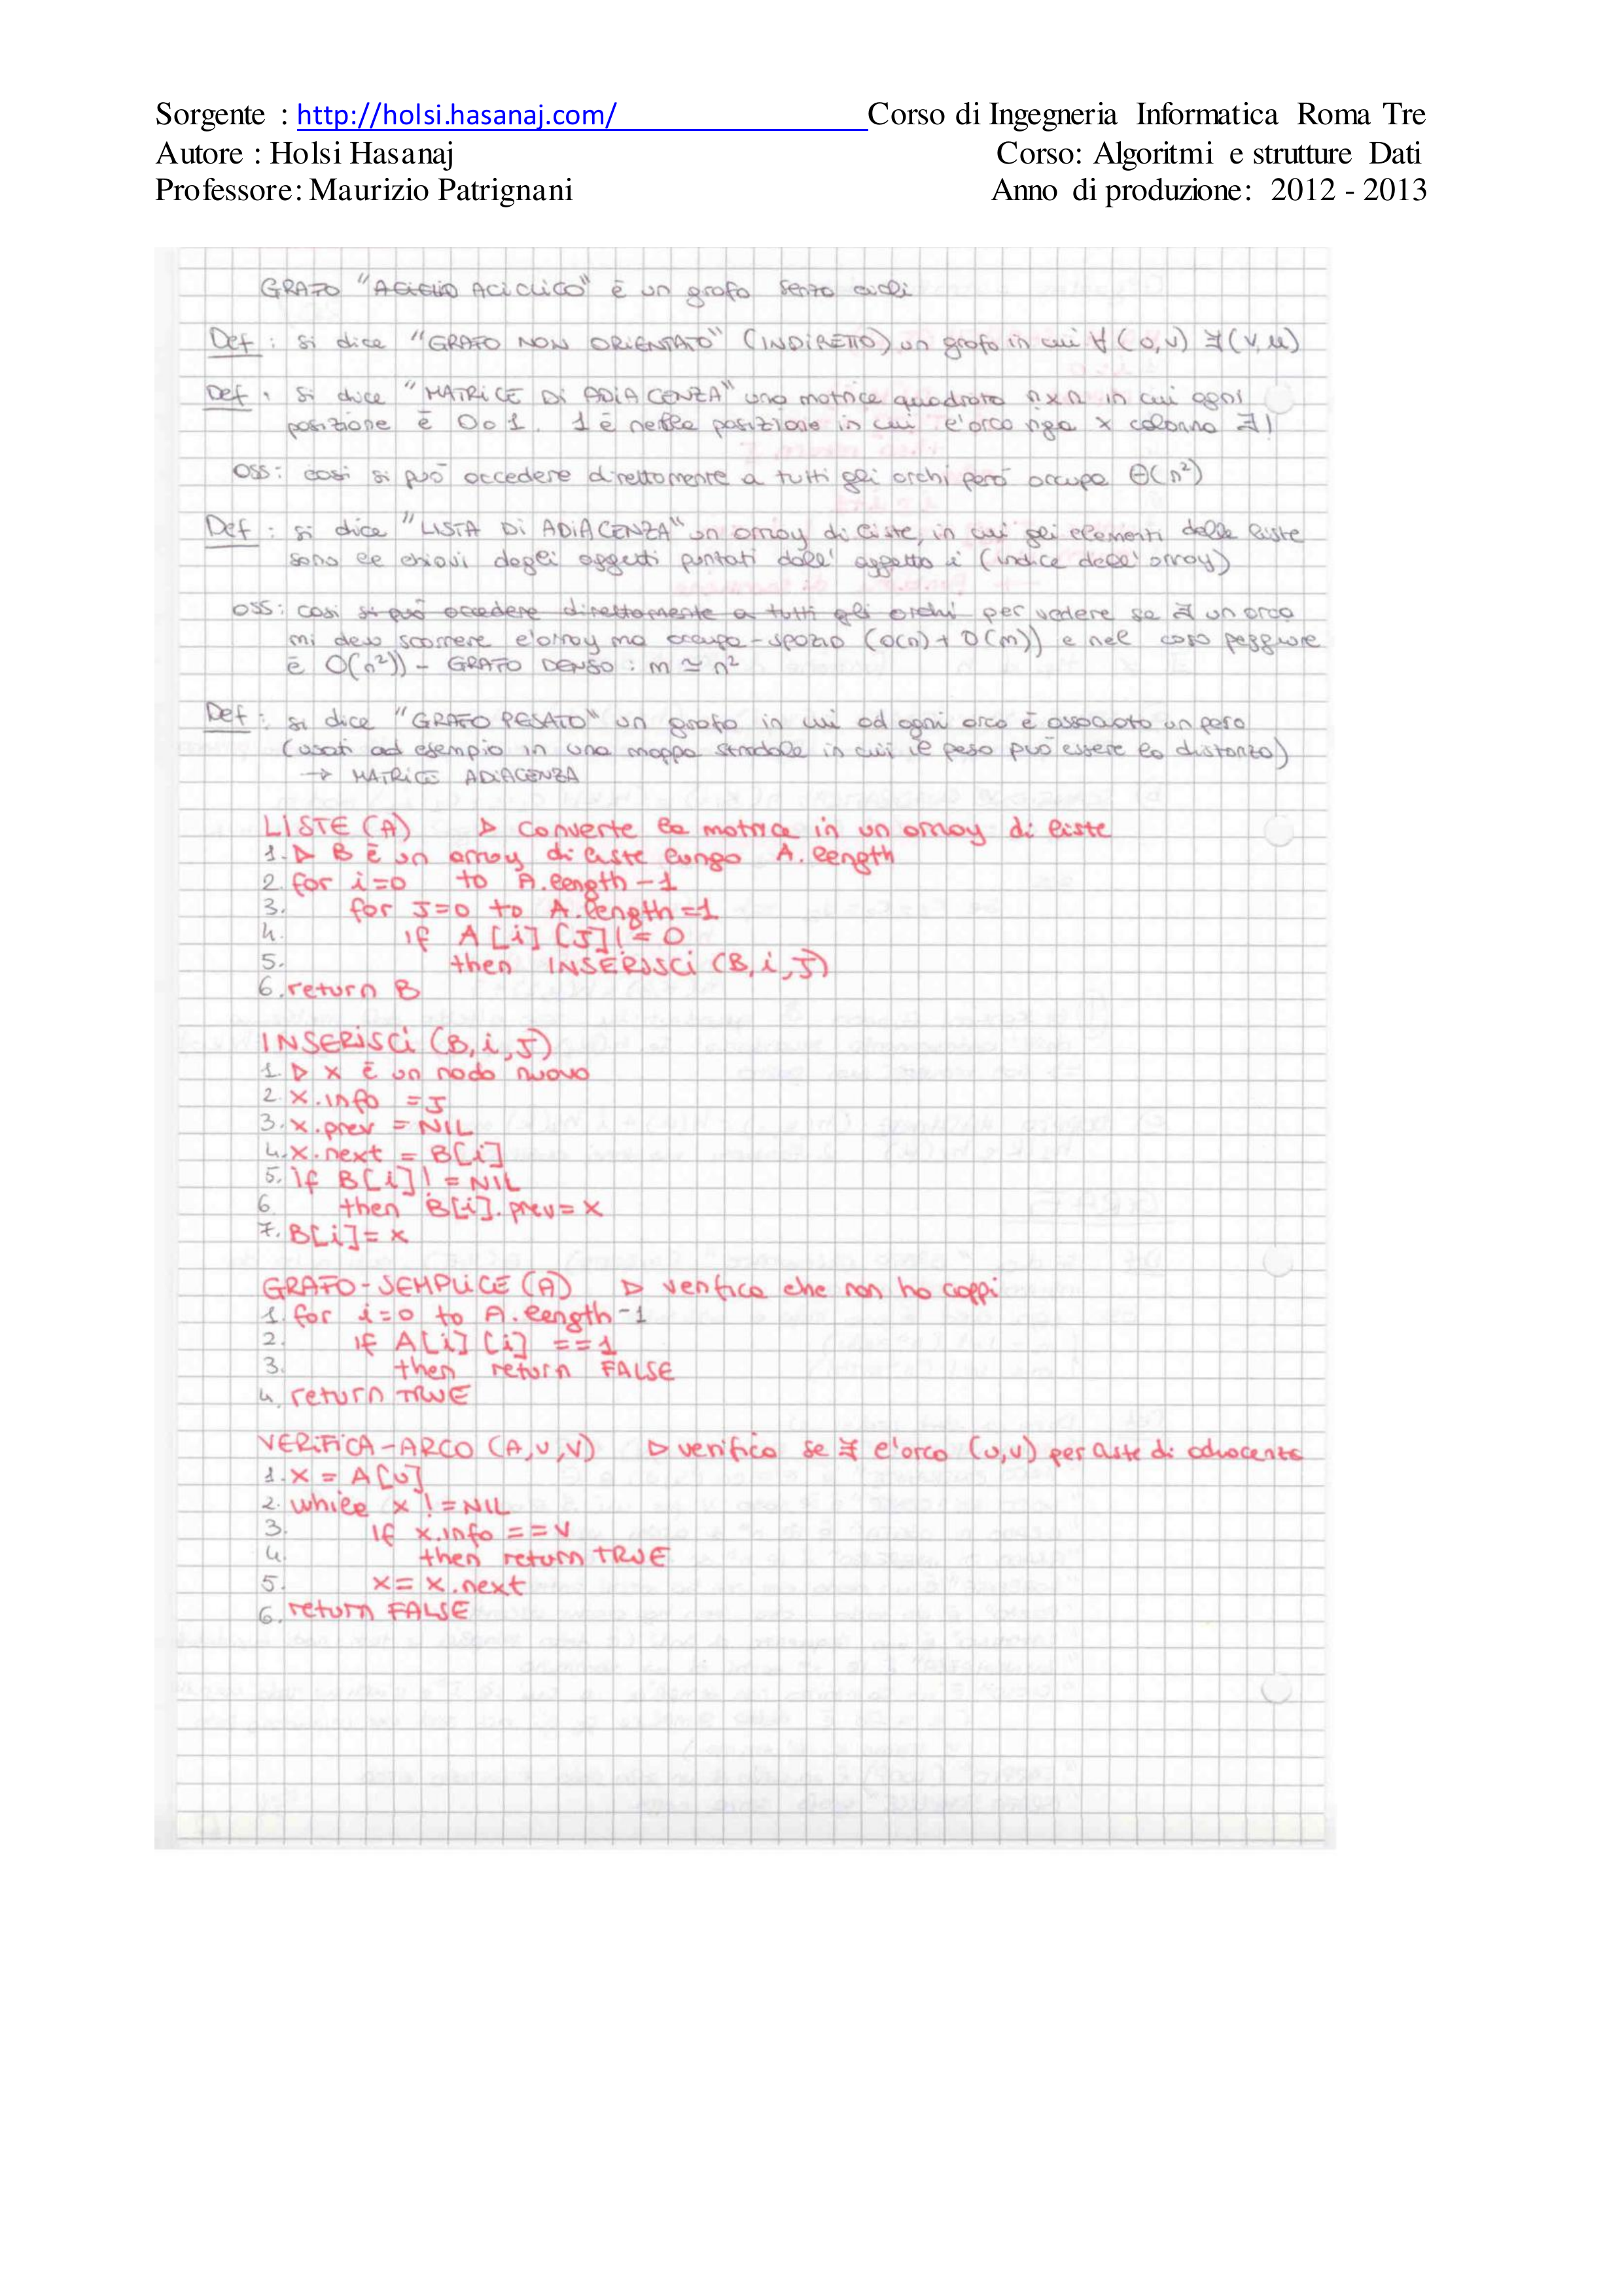 Sorgente : http://holsi.hasanaj.com/ Corso di Ingegneria Informatica Roma Tre
Autore : Holsi Hasanaj Corso: Algoritmi e strutture Dati
Professore: Maurizio Patrignani Anno di produzione: 2012 - 2013
GRAFO "ACICLICO" è un grafo senza cicli
Def: si dice "GRAFO NON ORIENTATO" (INDIRETTO) un grafo in cui ∀(u,v) ∃(v,u)
Def: si dice "MATRICE DI ADIACENZA" una matrice quadrata n×n in cui ogni
posizione è 0 o 1. 1 è nella posizione in cui l'arco riga x colonna ∃!
OSS: così si può accedere direttamente a tutti gli archi però occupa Θ(n²)
Def: si dice "LISTA DI ADIACENZA" un array di liste, in cui gli elementi delle liste
sono le chiavi degli oggetti puntati dall'oggetto i (indice dell'array)
OSS: così si può accedere direttamente a tutti gli archi per vedere se ∃ un arco
mi devo scorrere l'array ma occupa - spazio (O(n) + O(m)) e nel caso peggiore
è O(n²)) - GRAFO DENSO: m ≃ n²
Def: si dice "GRAFO PESATO" un grafo in cui ad ogni arco è associato un peso
(usati ad esempio in una mappa stradale in cui il peso può essere la distanza)
→ MATRICE ADIACENZA
LISTE (A) ▷ Converte la matrice in un array di liste
1. ▷ B è un array di liste lungo A.length
2. for i=0 to A.length-1
3. for J=0 to A.length=1
4. if A[i][J]!=0
5. then INSERISCI (B,i,J)
6. return B
INSERISCI (B,i,J)
1. ▷ x è un nodo nuovo
2. x.info =J
3. x.prev = NIL
4. x.next = B[i]
5. if B[i]!= NIL
6. then B[i].prev= x
7. B[i]= x
GRAFO-SEMPLICE (A) ▷ verifica che non ho cappi
1. for i=0 to A.length-1
2. if A[i][i] ==1
3. then return FALSE
4. return TRUE
VERIFICA-ARCO (A,U,V) ▷ verifico se ∃ l'arco (u,v) per liste di adiacenza
1. x = A[U]
2. while x != NIL
3. if x.info == V
4. then return TRUE
5. x= x.next
6. return FALSE